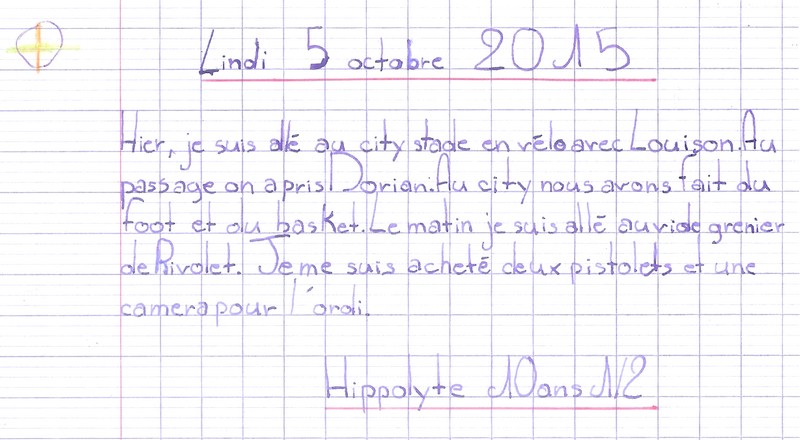 Lindi 5 octobre 2015
Hier, je suis allé au city stade en vélo avec Louison. Au
passage on a pris Dorian. Au city nous avons fait du
foot et du basket. Le matin je suis allé au vide grenier
de Rivolet. Je me suis acheté deux pistolets et une
camera pour l'ordi.
Hippolyte 10 ans 1/2